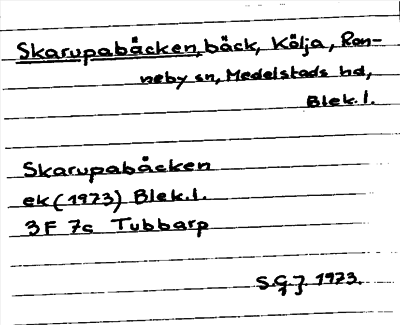 Skarupabäcken, bäck, Kölja, Ron-
neby sn, Medelstads hd,
Blek.l.
Skarupabäcken
ek (1973) Blek.l.
3F 7c Tubbarp
S.G.J. 1973.